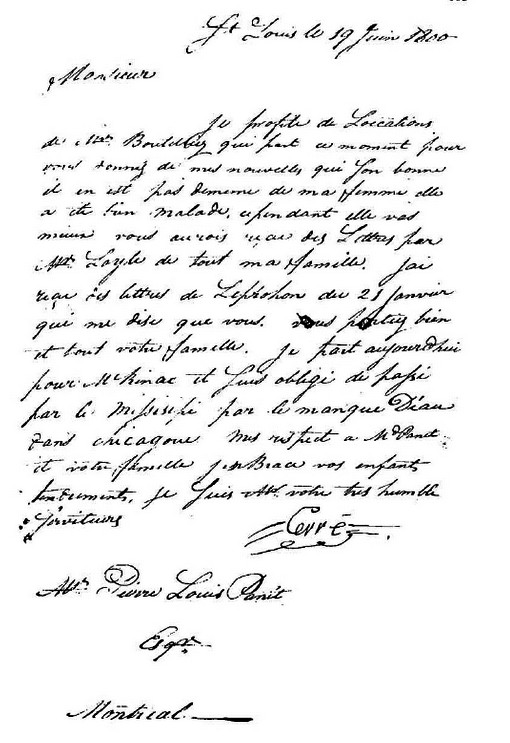 St Louis le 19 Juin 1800
Monsieur
Je profite de Loccations
de Mr. qui part ce moment pour
vous donnez de mes nouvelles qui Son bonne
il en est pas demême de ma femme elle
a eté bien malade, cependant elle vas
mieux vous aurois reçue des Lettres par
Mr. de tout ma famille. Jai
reçue des lettres de Leprohon du 21 Janvier
qui me dise que vous. vous portez bien
et tout votre famille. Je part aujourdhui
pour McKinac et suis obligé de passé
par le Missisipi par le manque Déau
dans chicagoue Mes respect a Md Panet
et votre famille JenBrace vos enfant
tendrements, Je suis Mr. votre tres humble
Serviteurs
Cerré
Mr. Pierre Louis Panet
Esqr.
Montreal